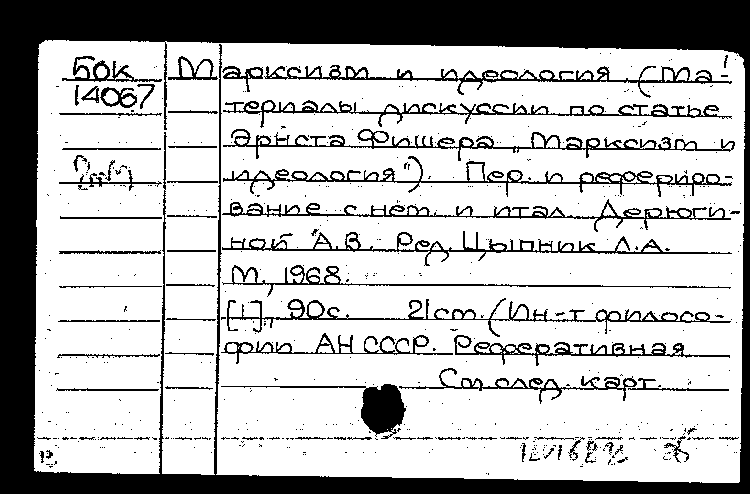 БОК
14067
Марксизм и идеология. (Ма-
териалы дискуссии по статье
Эрнста Фишера „Марксизм и
идеология"). Пер. и рефериро-
вание с нем. и итал. Дерюги-
ной А.В. Ред. Цыпник Л.А.
М., 1968.
[1], 90с. 21см. (Ин-т филосо-
фии АН СССР. Реферативная
См. след. карт.